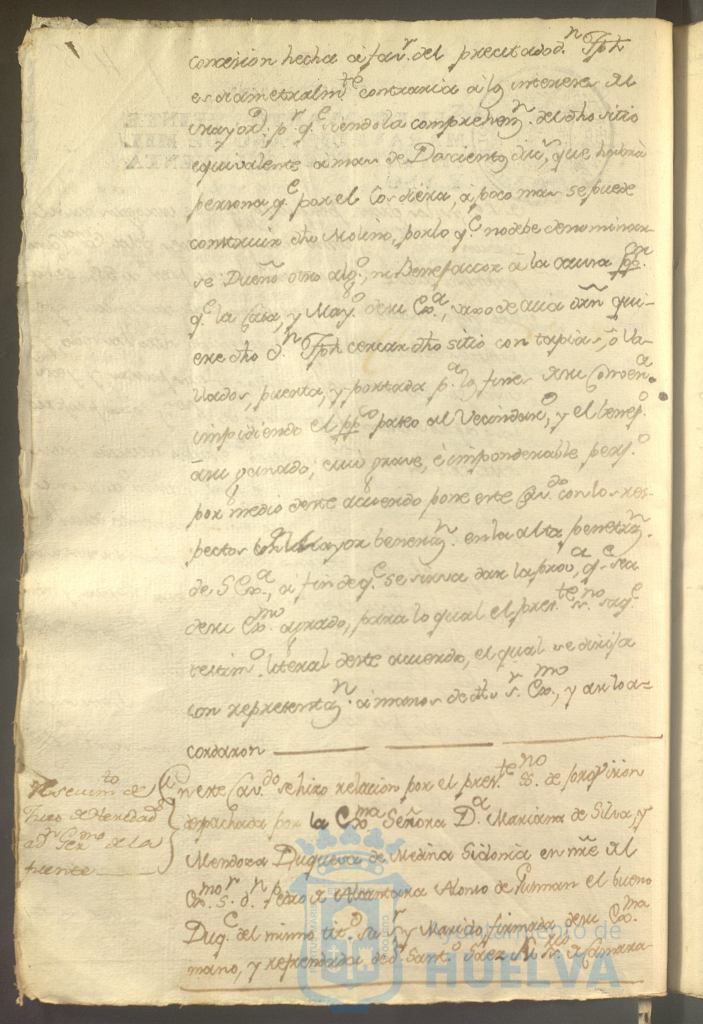 concesion hecha a favr. del precitado dn. Jph
es diametralmte. contraria a los intereses del
mayord. pr. qe. siendo la comprehenn. del dho sitio
equivalente a mas de Dosciento, que habrá
persona, qe. por el Cos diera, a poco mas se puede
construir dho Molino, por lo qe. no debe denominar-
se Dueño otro algo., ni Benefactor a la causa ppa.
qe. la Casa, y Mayo. de su Exa., uno de cuia orn qui-
ere dho dn. Jph cercar dho sitio con tapias, ó Va-
llados, puerta, y portada pa. los fines
impidiendo el ppo. paseo al Vecindaro., y el benefo.
a su ganado; cuio grave, é imponderable perjo.
por medio deste acuerdo pone este Cavdo. con los res-
pectos de mayor beneran. en la alta penetran.
de S Exa., a fin de qe. se sirva dar la prova., qe. sea
de su Exmo. agrado, para lo qual el preste. ssno. saqe.
testimo. literal deste acuerdo, el qual se dirija
con representan. a manos de dho sr. Exmo., y asi lo a-
cordaron
Reseuimto. de
Juro de Heredad
ad Germo. de la
fuente
En este Cavdo. se hizo relacion por el preste. ssno. de Provision
despachada por la Exma Señora Da. Mariana de Silva, y
Mendoza Duquesa de Medina Sidonia en nre del
Exmo. sr. dn. Pedro de Alcantara Alonso de Guzman el bueno
Duqe. del mismo tito. su sr. y Marido firmada de su Exma.
mano, y refrendada de dn. Santo. Saez su sro. de Camara
Ayuntamiento de
HUELVA